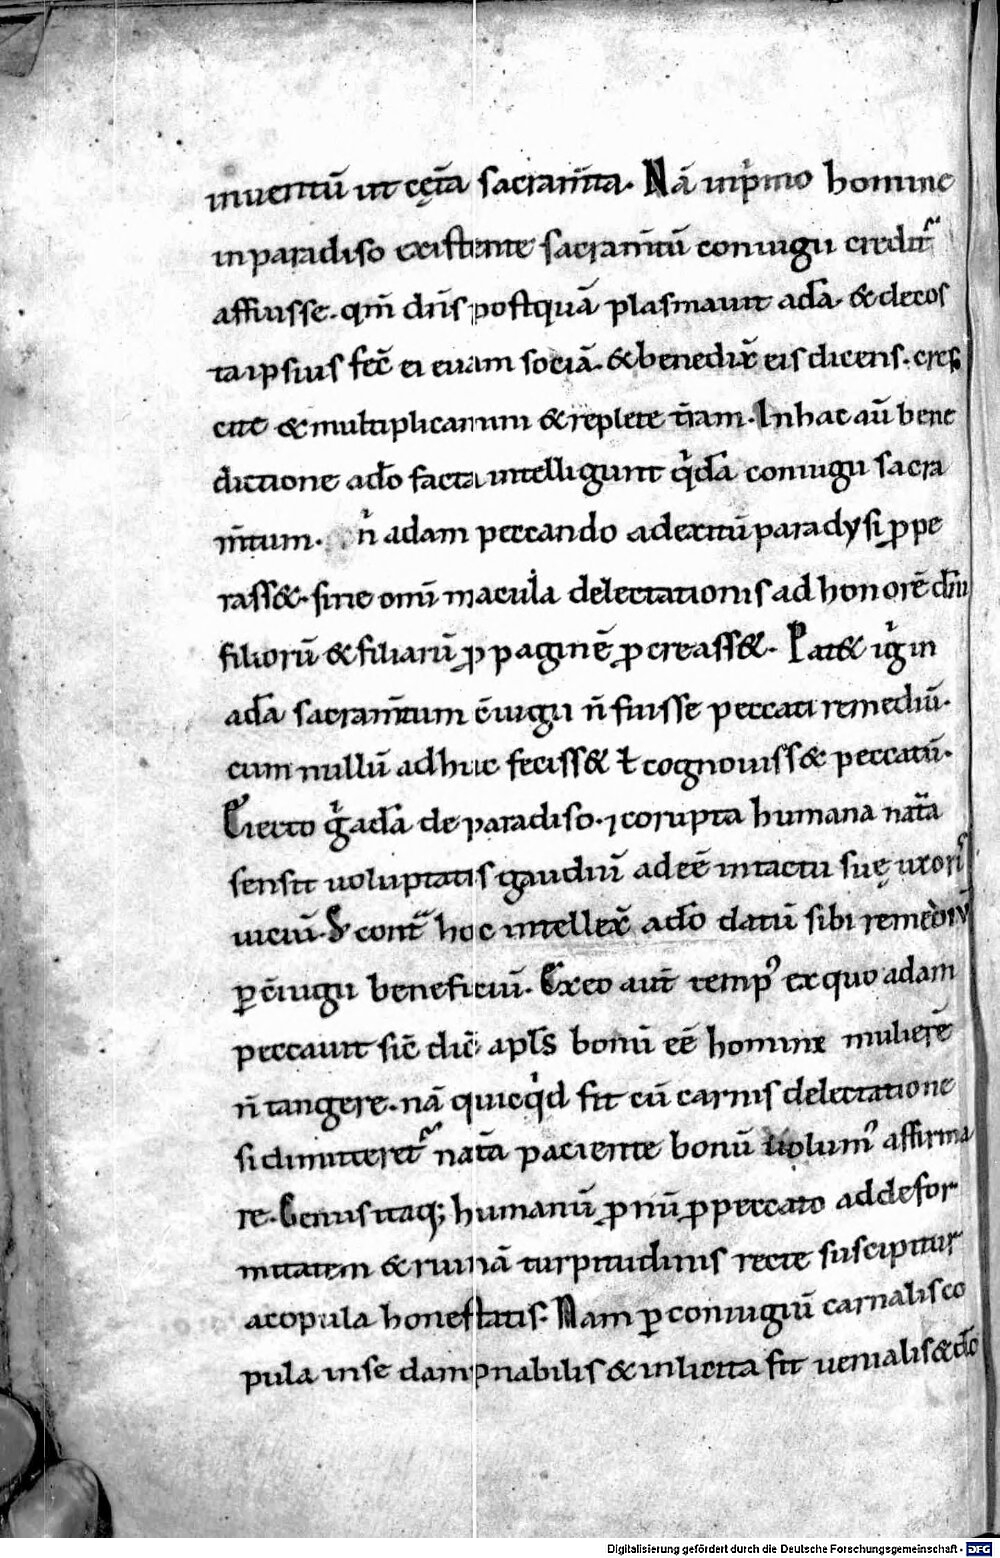 inventū ut cęt̄a sacram̄ta. Nā inp̄mo homine
in paradiso existente sacram̄tū coniugii credit᷑
affuisse. qm̄ dn̄s postquā plasmavit adā. & de cos
ta ipsius fec̄ ei evam sociā. & benedix̄ eis dicens. cres
cite & multiplicamini & replete t̄ram. In hac aū bene
dictione a do facta intelligunt q̄dā coniugii sacra
m̄tum. n̄ adam peccando ad exitū paradysi ꝓpe
rass&. sine omī macula delectationis ad honorē dīni
filiorū & filiarū ꝓpaginē ꝓcreass&. Pat& igⁱ in
adā sacram̄tum ꝯ̄iugii n̄ fuisse peccati remediū.
cum nullū adhuc feciss& ł cognoviss& peccatū.
Eiecto gⁱ adā de paradiso. ⁊ corupta humana nat̄a
sensit voluptatis gaudiū adeē in tactu suę uxoris
viciū. S; cont̄ hoc intellex̄ a do datū sibi remediū
ꝑ ꝯ̄iugii beneficiū. Ex eo aut̄ temp᷒ ex quo adam
peccavit sic̄ dic̄ apl̄s bonū eē homini mulierē
n̄ tangere. nā quicqⁱd fit cū carnis delectatione
si dimitteret᷑ nat̄a paciente bonū volum᷒ affirma
re. Genus itaq; humanū ꝓnū ꝓpeccato ad defor
mitatem & ruinā turpitudinis recte suscipitur
a copula honestatis. Nam ꝑ coniugiū carnalis co
pula in se dampnabilis & inlicita fit venialis & do